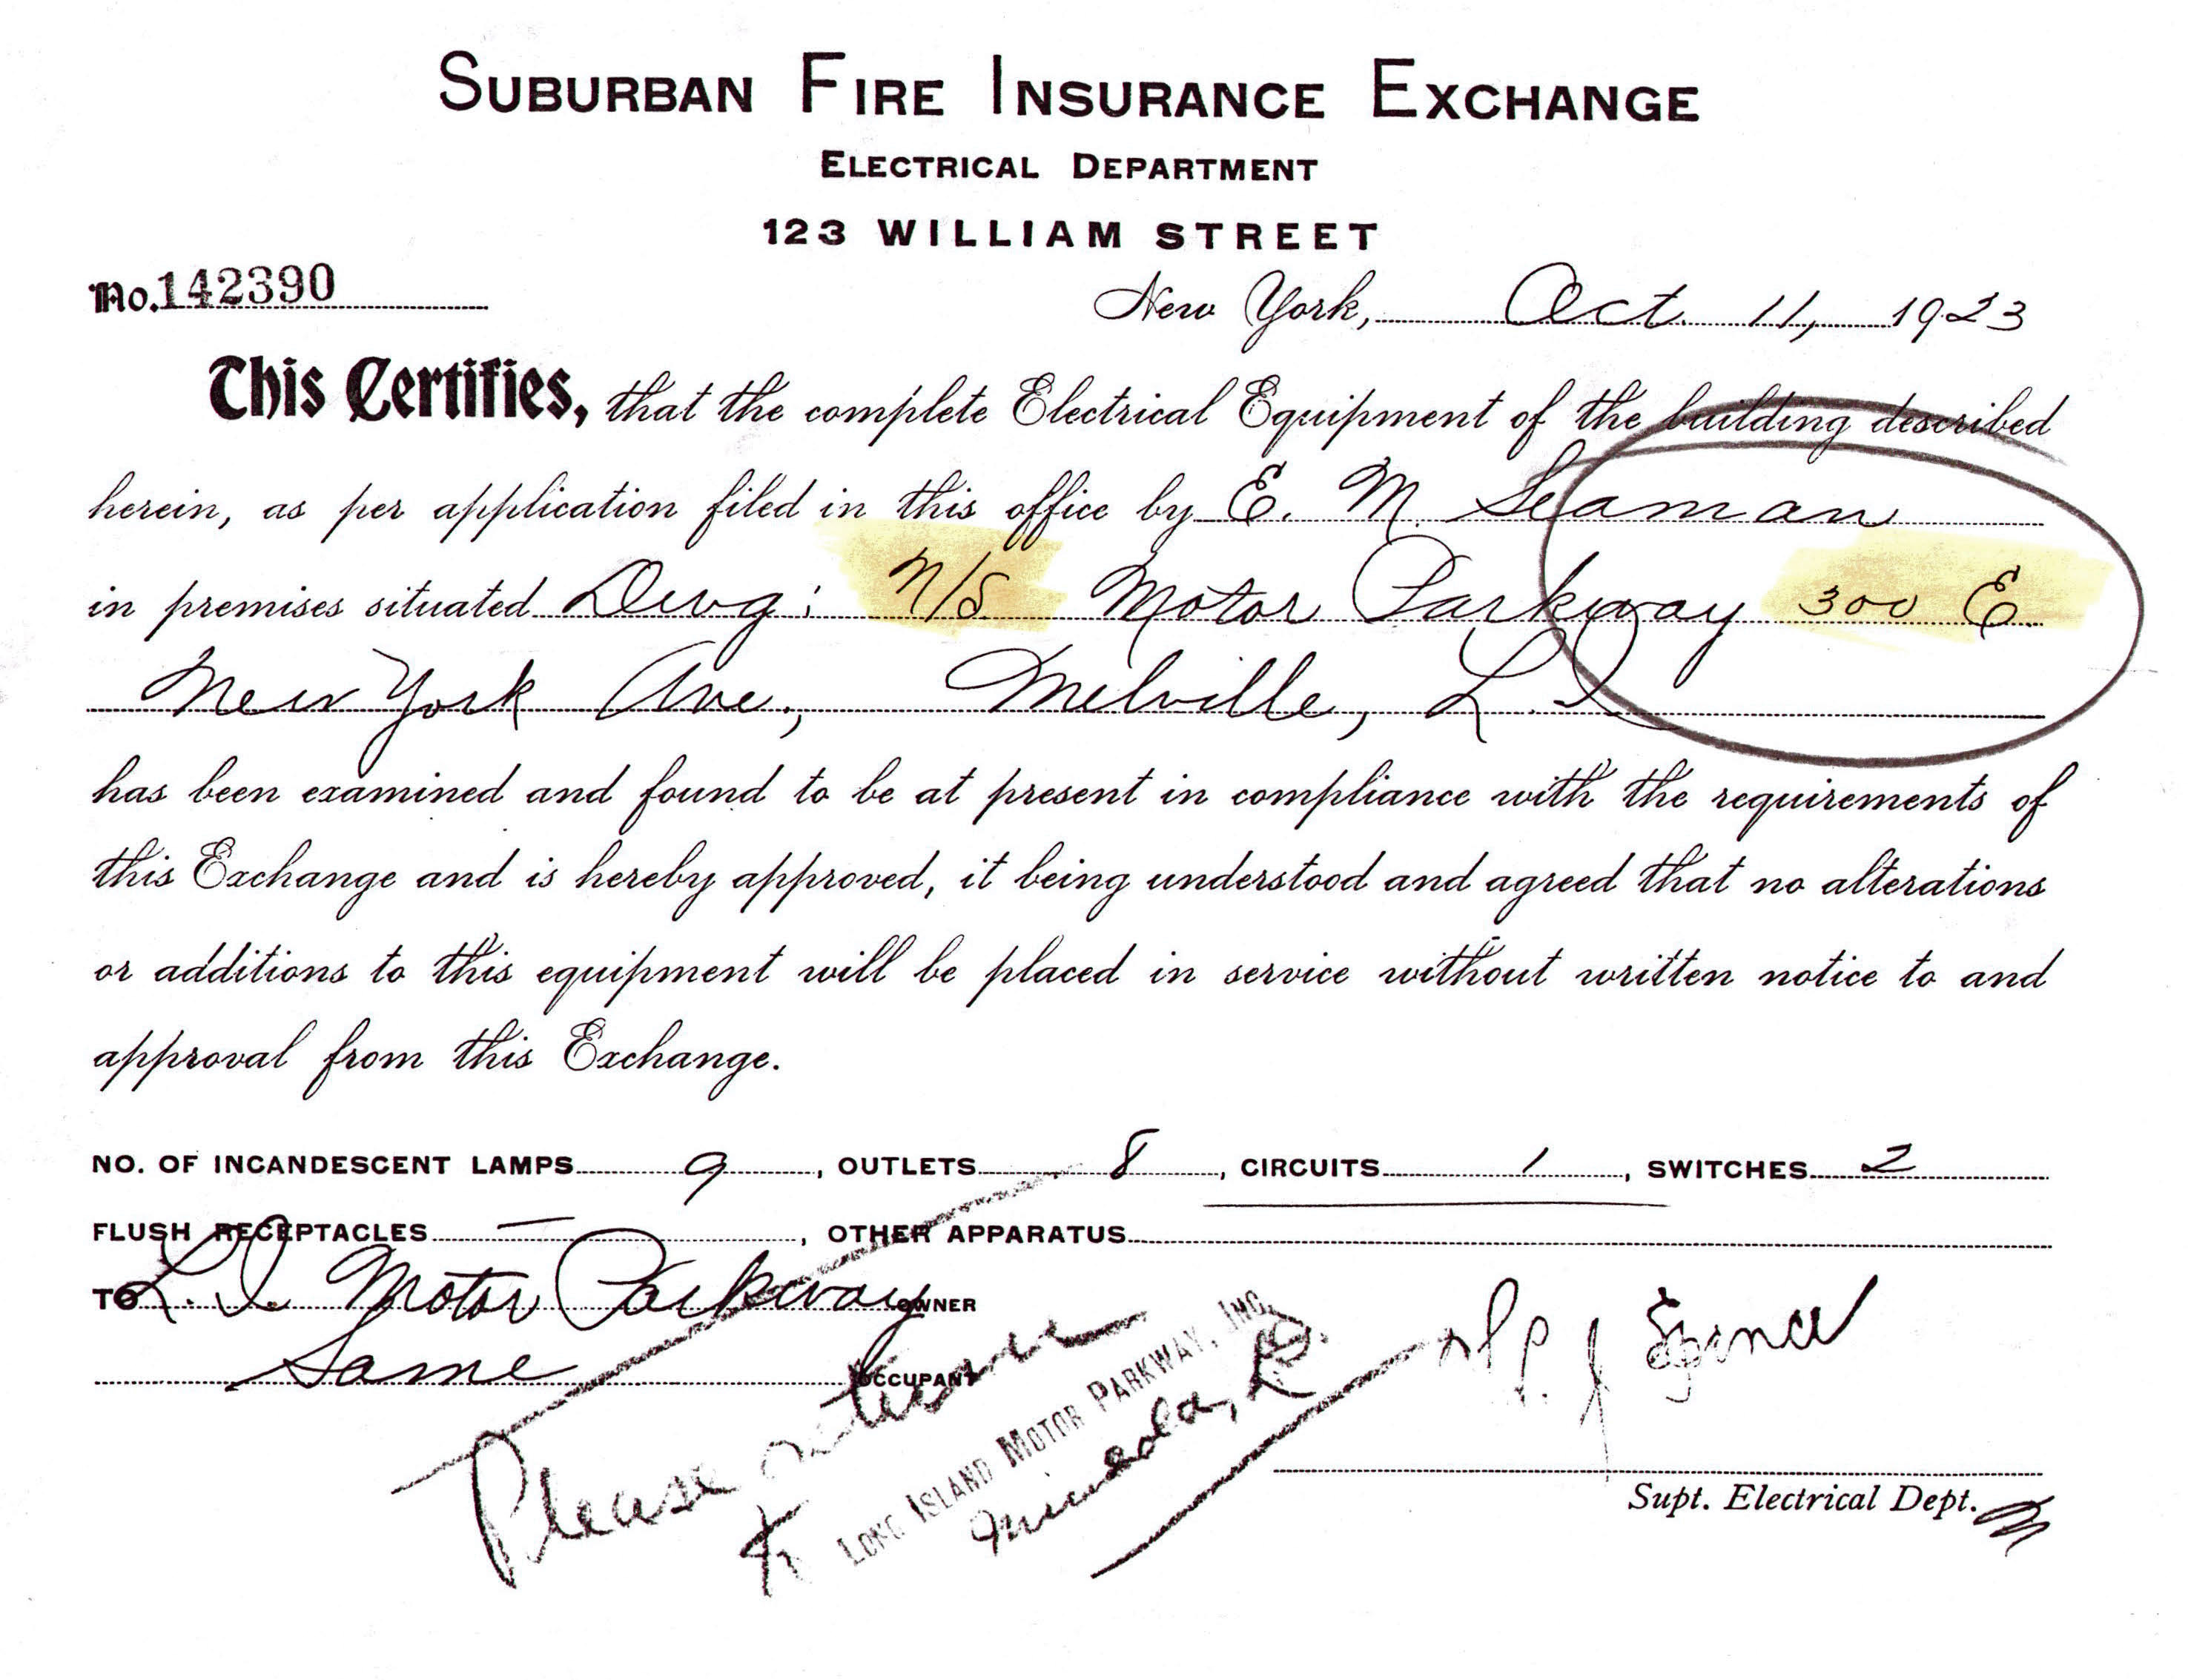 SUBURBAN FIRE INSURANCE EXCHANGE
ELECTRICAL DEPARTMENT
123 WILLIAM STREET
No. 142390
New York, Oct. 11, 1923
This Certifies, that the complete Electrical Equipment of the building described
herein, as per application filed in this office by E. M. Seaman
in premises situated Dwg: N/S Motor Parkway 300 E.
New York Ave., Melville, L. I.
has been examined and found to be at present in compliance with the requirements of
this Exchange and is hereby approved, it being understood and agreed that no alterations
or additions to this equipment will be placed in service without written notice to and
approval from this Exchange.
NO. OF INCANDESCENT LAMPS 9, OUTLETS 8, CIRCUITS 1, SWITCHES 2
FLUSH RECEPTACLES —, OTHER APPARATUS
TO L. I. Motor Parkway OWNER
Same OCCUPANT
Please return
to LONG ISLAND MOTOR PARKWAY, INC.
Mineola, L.I.
Supt. Electrical Dept.